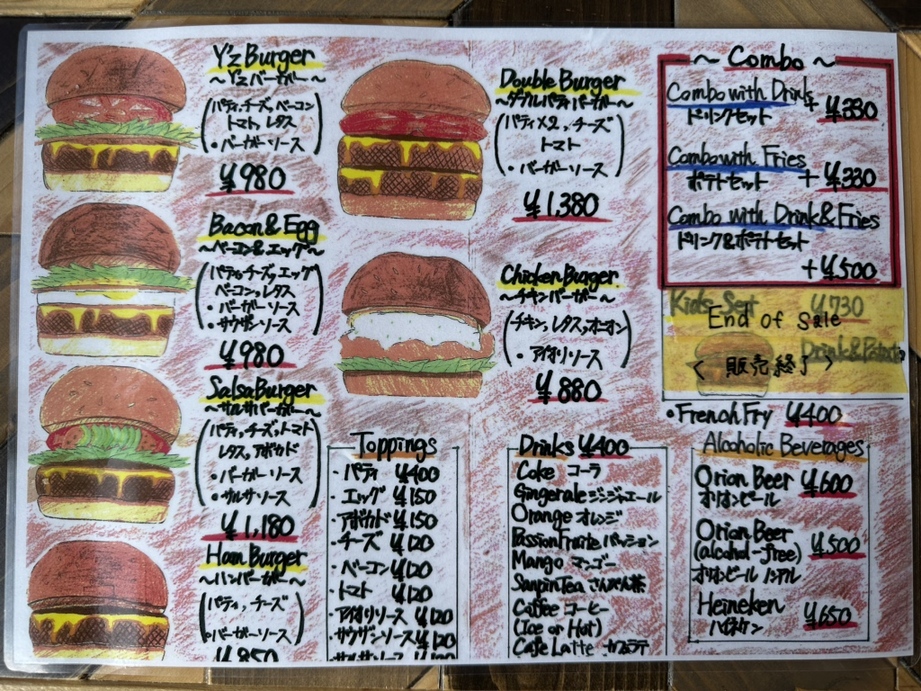 Y'z Burger
~Y'zバーガー~
(パティ,チーズ,ベーコン
トマト,レタス
・バーガーソース)
¥980
Bacon & Egg
~ベーコン&エッグ~
(パティ,チーズ,エッグ
ベーコン,レタス
・バーガーソース
・サウザンソース)
¥980
Salsa Burger
~サルサバーガー~
(パティ,チーズ,トマト
レタス,アボカド
・バーガーソース
・サルサソース)
¥1,180
Ham Burger
~ハンバーガー~
(パティ,チーズ
・バーガーソース)
¥850
Double Burger
~ダブルパティバーガー~
(パティ×2,チーズ
トマト
・バーガーソース)
¥1,380
Chicken Burger
~チキンバーガー~
(チキン,レタス,オニオン
・アイオリソース)
¥880
Toppings
・パティ ¥400
・エッグ ¥150
・アボカド ¥150
・チーズ ¥120
・ベーコン ¥120
・トマト ¥120
・アイオリソース ¥120
・サウザンソース ¥120
・サルサソース ¥120
Drinks ¥400
Coke コーラ
Gingerale ジンジャエール
Orange オレンジ
PassionFruite パッション
Mango マンゴー
SanpinTea さんぴん茶
Coffee コーヒー
(Ice or Hot)
Cafe Latte カフェラテ
~ Combo ~
Combo with Drink
ドリンクセット +¥330
Combo with Fries
ポテトセット +¥330
Combo with Drink&Fries
ドリンク&ポテトセット
+¥500
Kids Set ¥730
End of Sale
Drink&Potato
<販売終了>
・French Fry ¥400
Alcoholic Beverages
Orion Beer ¥600
オリオンビール
Orion Beer
(alcohol-free) ¥500
オリオンビール ノンアル
Heineken ¥650
ハイネケン